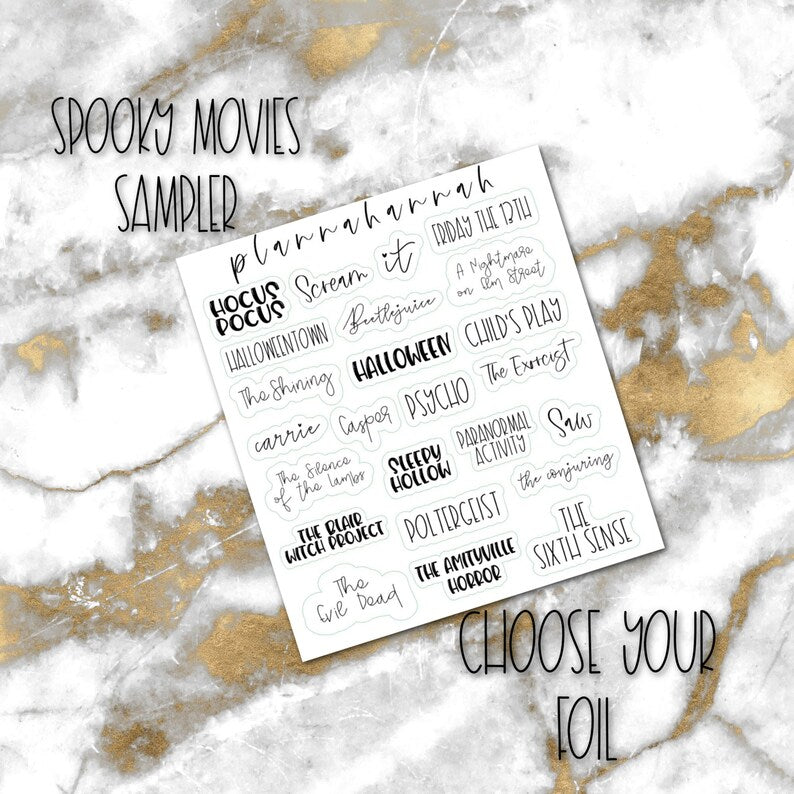 SPOOKY MOVIES
SAMPLER
plannahannah
HOCUS
POCUS
Scream
it
FRIDAY THE 13TH
HALLOWEENTOWN
Beetlejuice
A Nightmare
on Elm Street
The Shining
HALLOWEEN
CHILD'S PLAY
carrie
Casper
PSYCHO
The Exorcist
The Silence
of the Lambs
SLEEPY
HOLLOW
PARANORMAL
ACTIVITY
Saw
THE BLAIR
WITCH PROJECT
POLTERGEIST
the conjuring
The
Evil Dead
THE AMITYVILLE
HORROR
THE
SIXTH SENSE
CHOOSE YOUR
FOIL